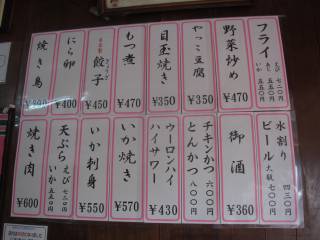 フライ えび 七二〇
あじ 五五〇
いか 五五〇
野菜炒め
¥470
やっこ豆腐
¥350
目玉焼き
¥350
もつ煮
¥470
餃子
¥450
にら卵
¥400
焼き鳥
水割り 四三〇
ビール 大瓶 七二〇
御酒
¥360
チキンかつ 六〇〇
とんかつ 八〇〇
ウーロンハイ
ハイサワー
¥430
いか焼き
¥570
いか刺身
¥550
天ぷら えび 七三〇
いか 五五〇
焼き肉
¥600